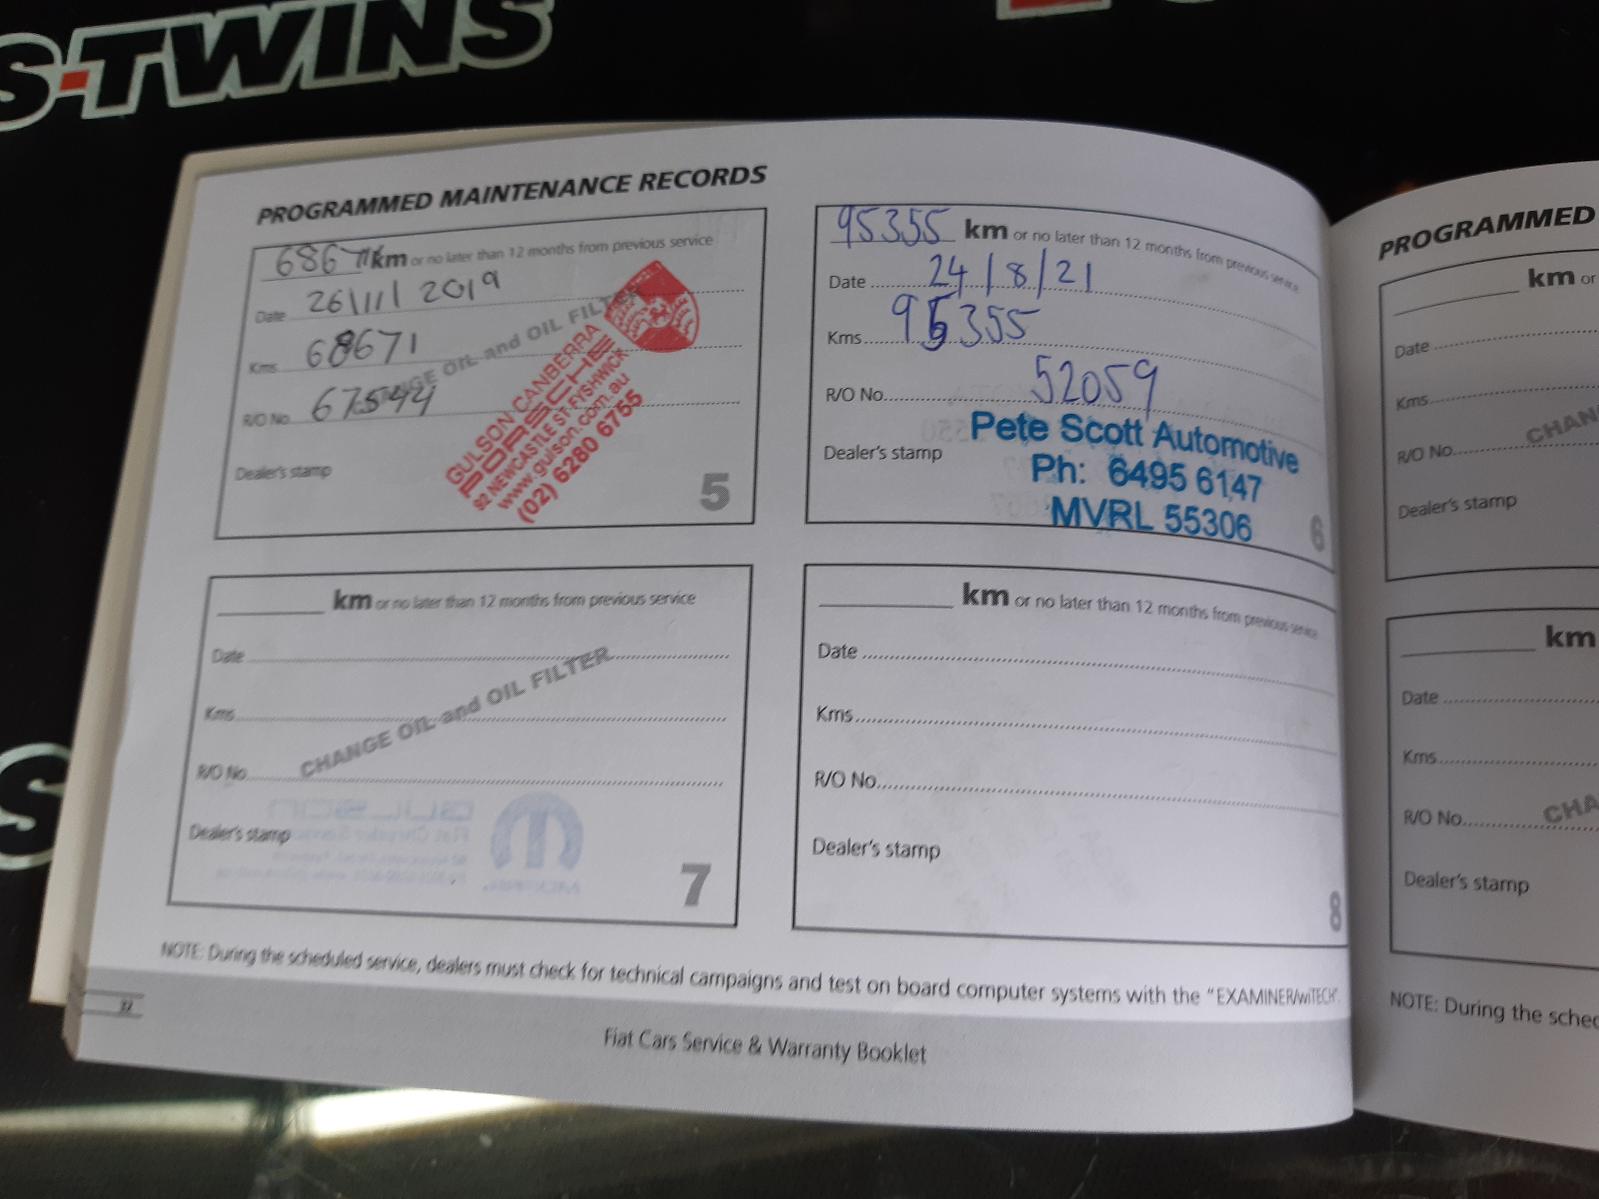 S-TWINS
PROGRAMMED MAINTENANCE RECORDS
68671 km or no later than 12 months from previous service
Date 26/11/2019
Kms 68671
R/O No. 67544
Dealer's stamp
CHANGE OIL and OIL FILTER
GULSON CANBERRA
PORSCHE
92 NEWCASTLE ST FYSHWICK
www.gulson.com.au
(02) 6280 6755
5
95355 km or no later than 12 months from previous service
Date 24/8/21
Kms 95355
R/O No. 52059
Dealer's stamp
Pete Scott Automotive
Ph: 6495 6147
MVRL 55306
6
km or no later than 12 months from previous service
Date
Kms
R/O No.
CHANGE OIL and OIL FILTER
Dealer's stamp
7
km or no later than 12 months from previous service
Date
Kms
R/O No.
Dealer's stamp
8
NOTE: During the scheduled service, dealers must check for technical campaigns and test on board computer systems with the "EXAMINER/wiTECH".
32
Fiat Cars Service & Warranty Booklet
PROGRAMMED
km or
Date
Kms
R/O No.
CHAN
Dealer's stamp
km
Date
Kms
R/O No.
CHA
Dealer's stamp
NOTE: During the sched